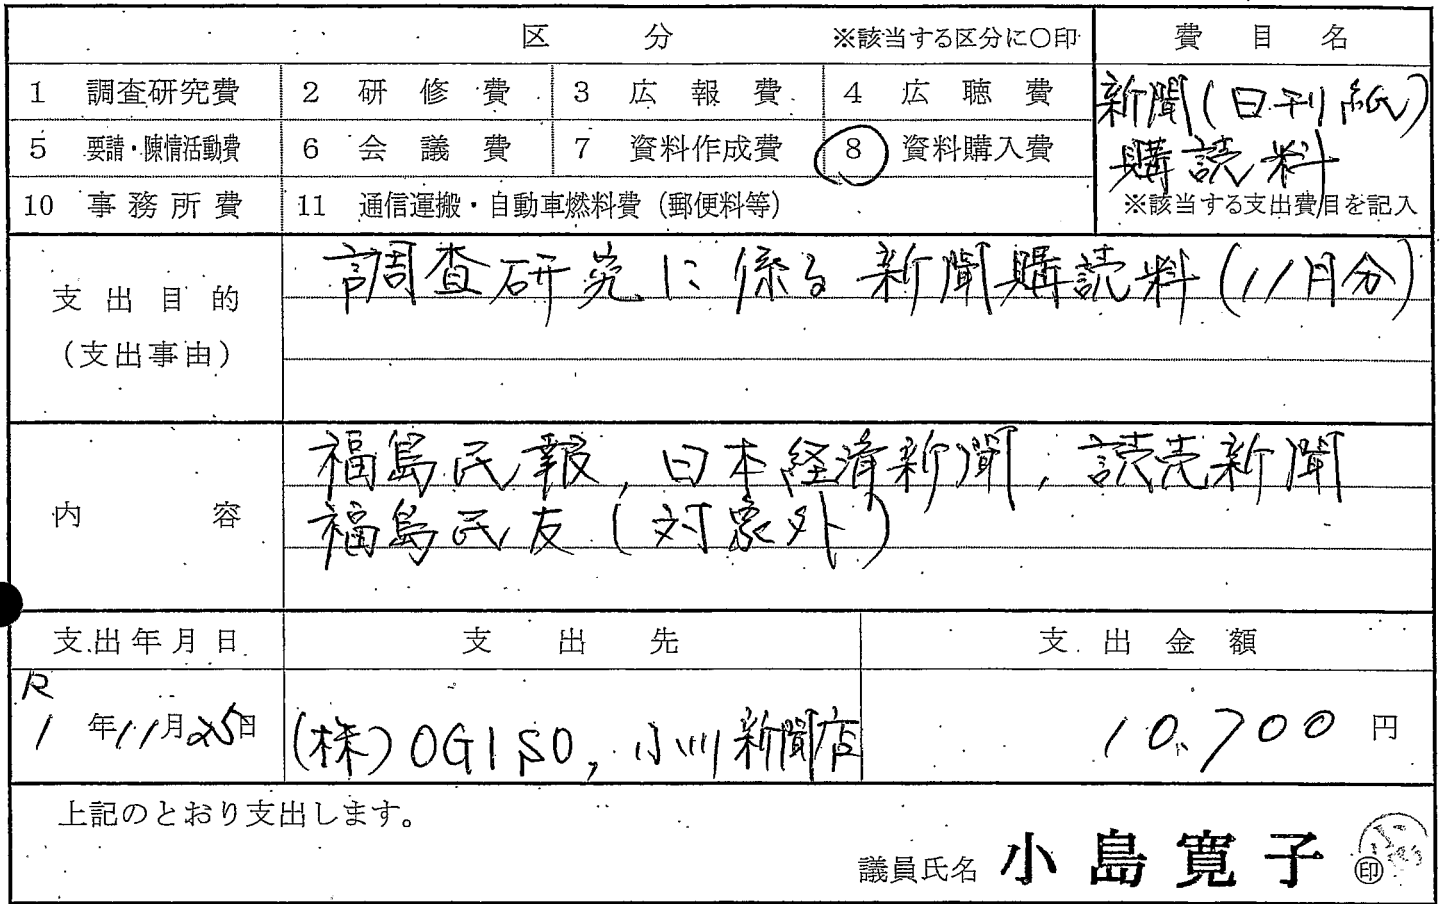 区 分 ※該当する区分に○印 費目名
1 調査研究費 2 研修費 3 広報費 4 広聴費
新聞(日刊紙)
5 要請・陳情活動費 6 会議費 7 資料作成費 8 資料購入費
購読料
10 事務所費 11 通信運搬・自動車燃料費(郵便料等)
※該当する支出費目を記入
支出目的
(支出事由)
調査研究に係る新聞購読料(11月分)
内容
福島民報、日本経済新聞、読売新聞
福島民友(対象外)
支出年月日 支出先 支出金額
R
1年11月25日 (株)OGISO, 小川新聞店 10,700円
上記のとおり支出します。
議員氏名 小島寛子 印